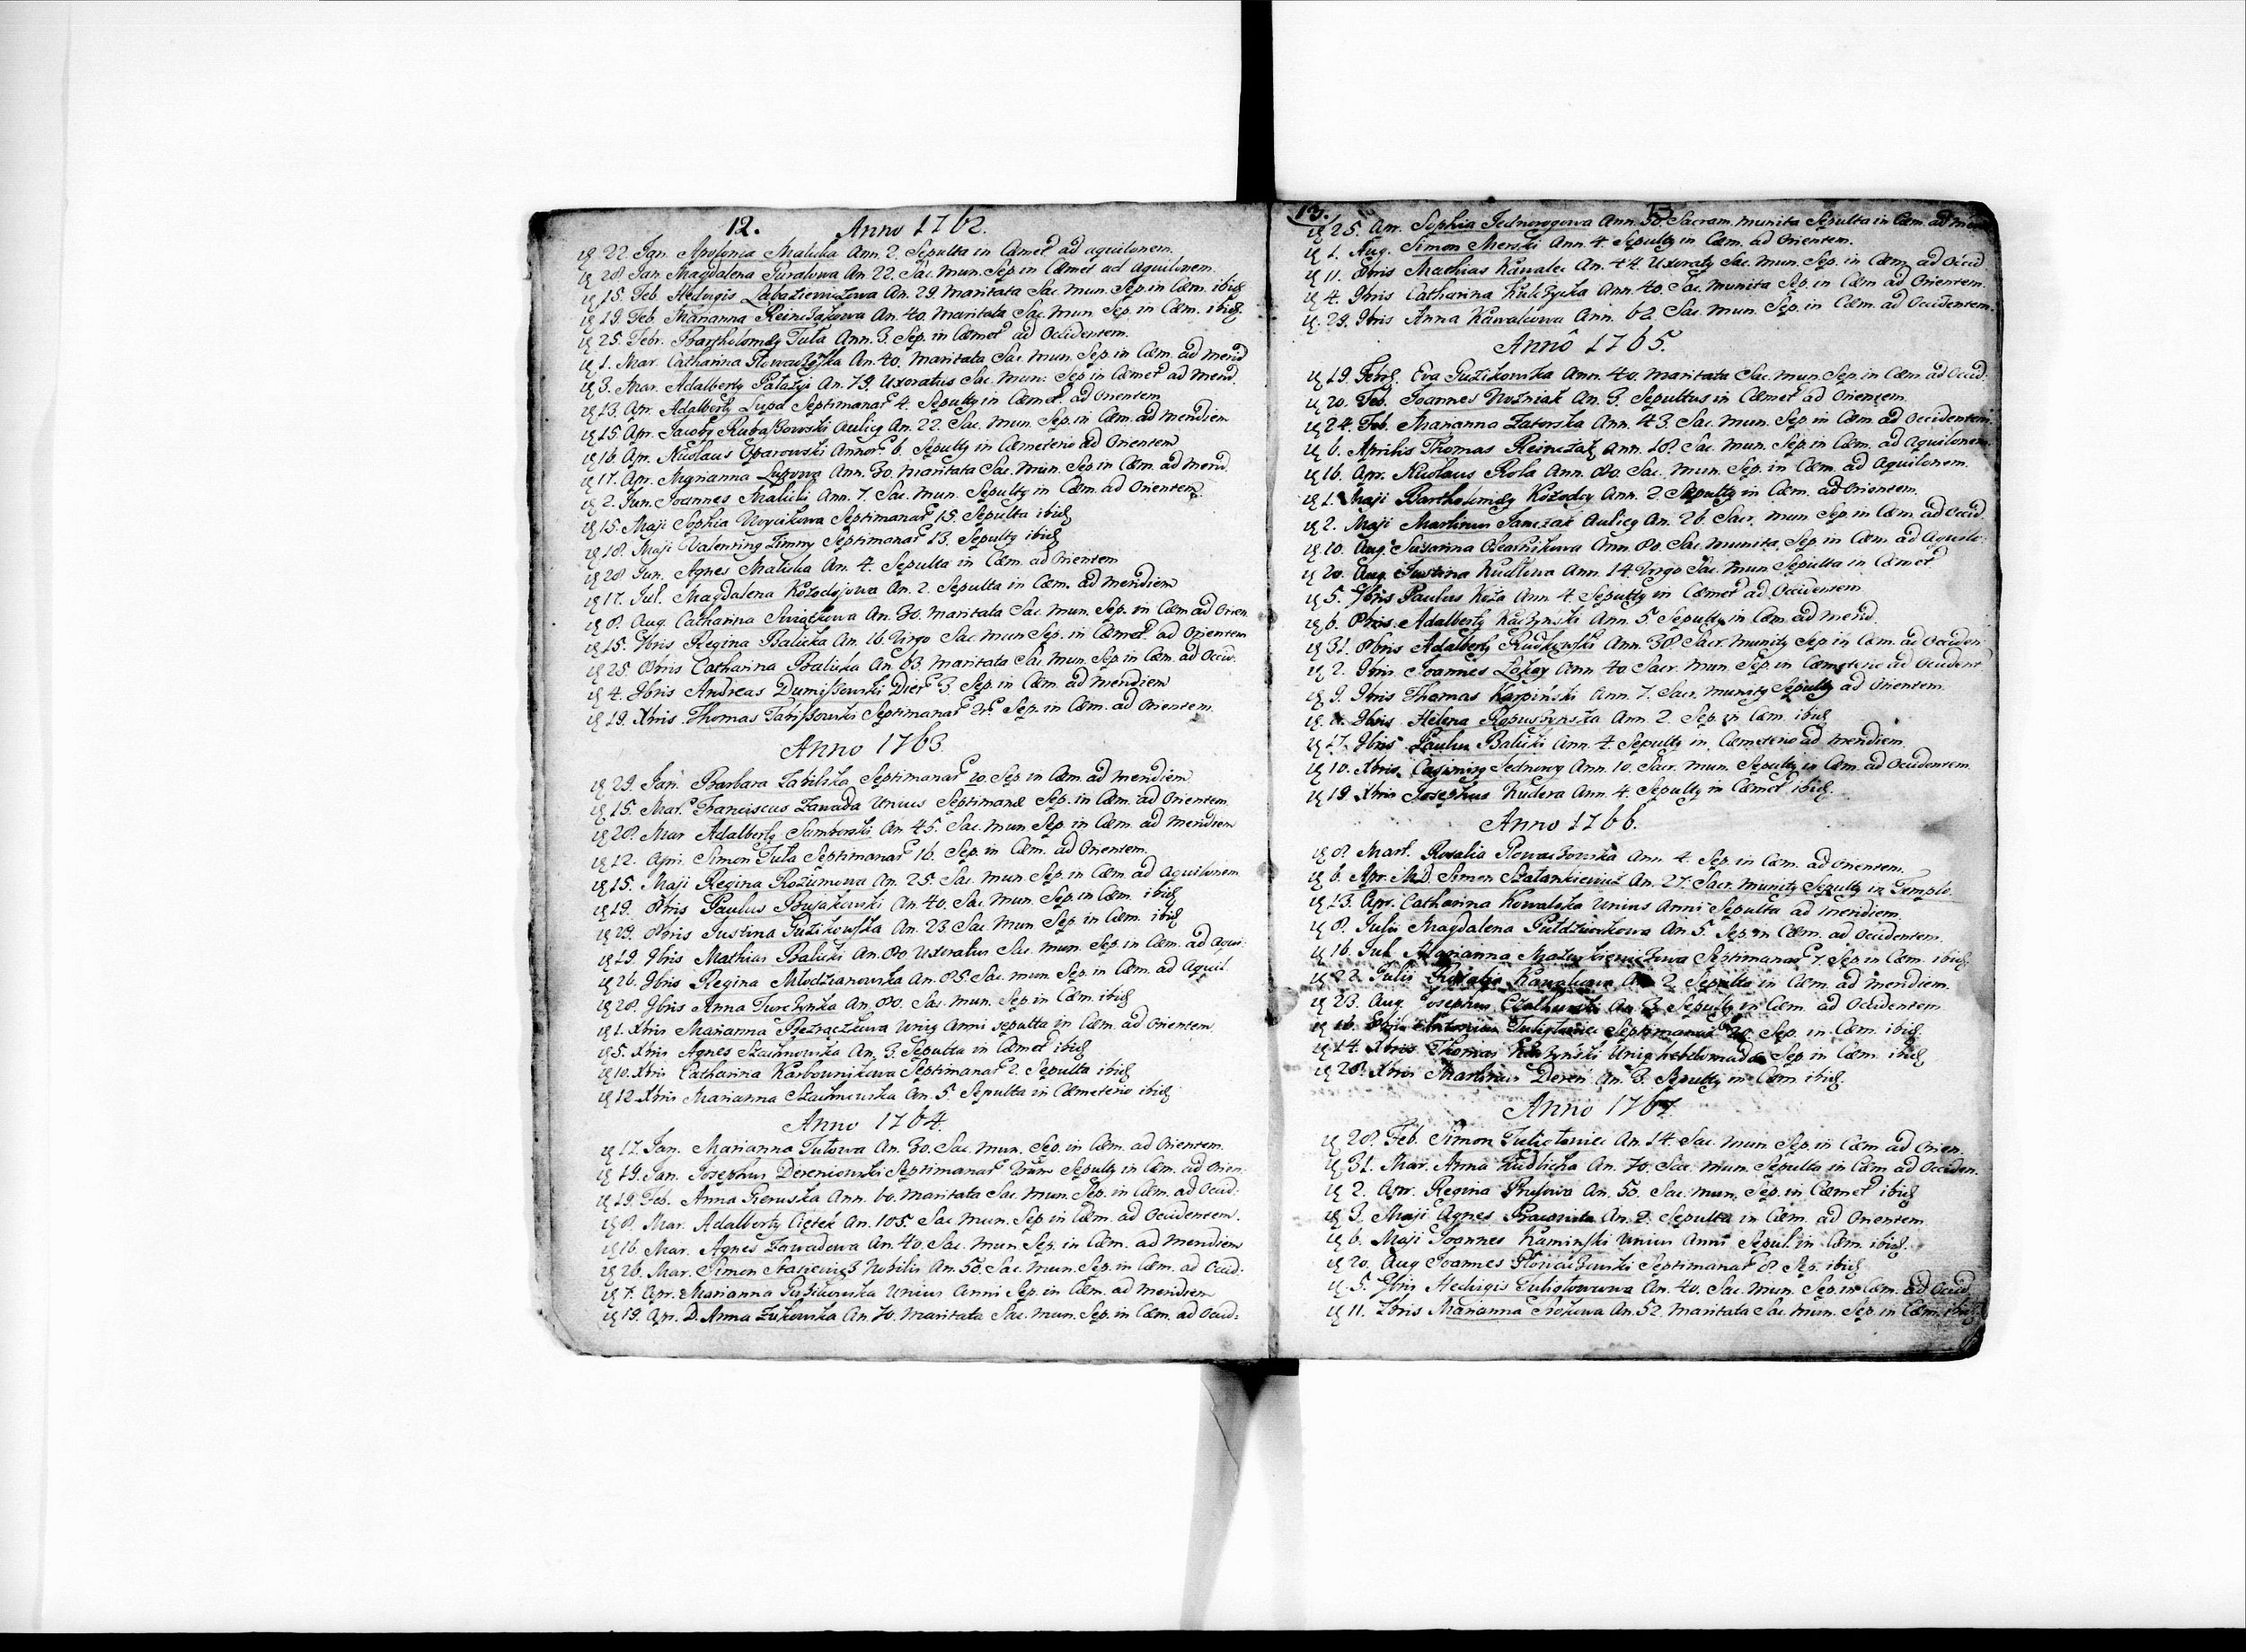 12. Anno 1762.
22. Jan. Apolonia Malicka Ann. 2. Sepulta in Cæmet. ad aquilonem.
28 Jan. Magdalena Guralowa An. 22. Sac. Mun. Sep. in Cæmet ad aquilonem.
15. Feb. Hedvigis An. 29. Maritata Sac. Mun. Sep. in Cæm. ibid
19 Feb. Marianna An. 40. Maritata Sac. Mun. Sep. in Cæm. ibid
25. Febr. Bartholomæg Tuła Ann. 3. Sep. in Cæmet ad Occidentem.
1. Mar. Catharina An. 40. Maritata Sac. Mun. Sep. in Cæm. ad Merid
3. Mar. Adalbertg An. 79. Uxoratus Sac. Mun: Sep in Cæmet ad Merid.
13. Apr. Adalbertg Lupa Septimanar 4. Sepultg in Cæmet. ad Orientem
15. Apr. Jacobg aulicg An. 22. Sac. Mun. Sep. in Cæm. ad Meridiem
16. Apr. Nicolaus Oparowski Annor 6. Sepultg in Cæmeterio ad Orientem
17. Apr. Marianna Lupowa Ann. 30. Maritata Sac. Mun. Sep. in Cæm. ad Merid.
2. Jun. Joannes Malicki Ann. 7. Sac. Mun. Sepultg in Cæm. ad Orientem.
15. Maji Sophia Woycikowa Septimanar 15. Sepulta ibid
18. Maji Valenting Zimny Septimanar 13. Sepultg ibid
28 Jun. Agnes Malicka An. 4. Sepulta in Cæm. ad Orientem
17. Jul. Magdalena Kozodojowa An. 2. Sepulta in Cæm. ad Meridiem
8. Aug. Catharina Swiątkowa An. 30. Maritata Sac. Mun. Sep. in Cæm ad Orien.
15. 7bris Regina Balicka An. 16 Virgo Sac. Mun Sep. in Cæmet. ad Orientem
25. 8bris Catharina Balicka An. 63. Maritata Sac. Mun. Sep. in Cæm. ad Occid.
4. 9bris Andreas Dumiszowski Dier 3. Sep. in Cæm. ad Meridiem
19. Xbris Thomas Tabiszowski Septimanar Sep. in Cæm. ad Orientem.
Anno 1763.
29. Jan. Barbara Zabilska Septimanar 20. Sep in Cæm. ad Meridiem
15. Mar. Franciscus Zawada Unius Septimanæ Sep. in Cæm. ad Orientem
28. Mar Adalbertg Samborski An. 45. Sac. Mun Sep. in Cæm. ad Meridiem
12. Apri. Simon Tuła Septimanar 16. Sep. in Cæm. ad Orientem.
15. Maji Regina Rozumowa An. 25. Sac. Mun. Sep. in Cæm. ad Aquilonem
19. 8bris Paulus Bujakowski An. 40. Sac. Mun. Sep. in Cæm. ibid
29. 8bris Justina Guzikowska An. 23 Sac. Mun Sep. in Cæm. ibid
19. 9bris Mathias Balicki An. 80 Uxoratus Sac. Mun. Sep. in Cæm. ad Aqui:
26. 9bris Regina Młodzianowska An. 85. Sac. Mun. Sep. in Cæm. ad Aquil.
28. 9bris Anna Turczynka An. 80. Sac. Mun. Sep. in Cæm. ibid
1. Xbris Marianna Unig Anni sepulta in Cæm. ad Orientem
5. Xbris Agnes Stachnowska An. 3. Sepulta in Cæmet ibid
10. Xbris Catharina Karbownikowa Septimanar 2. Sepulta ibid
12 Xbris Marianna Stachnowska An. 5. Sepulta in Cæmeterio ibid
Anno 1764.
17. Jan. Marianna Tułowa An. 30. Sac. Mun. Sep. in Cæm. ad Orientem.
19. Jan. Josephus Dereniowski Septimanar Sepultg in Cæm. ad Orien.
19. Feb. Anna Ann. 60. Maritata Sac. Mun. Sep. in Cæm. ad Occid:
8. Mar. Adalbertg Ciętek An. 105. Sac Mun. Sep in Cæm. ad Occidentem.
16. Mar. Agnes Zawadowa An. 40. Sac. Mun Sep. in Cæm. ad Meridiem
26. Mar. Simon Stasiewicz Nobilis An. 50. Sac. Mun. Sep. in Cæm. ad Occid:
7. Apr. Marianna Unius Anni Sep. in Cæm. ad Meridiem
19. Apr. D. Anna Żukowska An. 70. Maritata Sac. Mun. Sep. in Cæm. ad Occid:
13. 13
25. Apr. Sophia Jednorogowa Ann. 50. Sacram. Munita Sepulta in Cæm. ad
1. Aug. Simon Merski Ann. 4 Sepultg in Cæm. ad Orientem.
11. 8bris Mathias Kawalec An. 44. Uxoratg Sac. Mun. Sep. in Cæm. ad Occid
4. 9bris Catharina Kulczycka Ann. 40. Sac. Munita Sep. in Cæm ad Orientem.
29. 9bris Anna Kawalcowa Ann. 62. Sac. Mun. Sep. in Cæm. ad Occidentem.
Annô 1765.
19. Febr. Eva Guzikowska Ann. 40. Maritata Sac. Mun. Sep. in Cæm ad Occid.
20. Feb. Joannes Woźniak An. 3. Sepultus in Cæmet ad Orientem.
24. Feb. Marianna Zatorska Ann. 43. Sac. Mun. Sep. in Cæm. ad Occidentem.
6. Aprilis Thomas Ann. 18. Sac. Mun. Sep. in Cæm. ad Aquilonem
16. Apr. Nicolaus Rola Ann. 80. Sac. Mun. Sep. in Cæm. ad Aquilonem.
1. Maji Bartholomæg Kozodoy Ann. 2 Sepultg in Cæm. ad Orientem.
2. Maji Martinus Janczak Aulicg An. 26. Sacr. Mun Sep. in Cæm. ad Occid.
10. Aug. Susanna Ann. 80. Sac. Munita. Sep. in Cæm. ad Aquilo:
20. Aug. Justina Kudłowa Ann. 14. Virgo Sac. Mun Sepulta in Cæmet
5. 7bris Paulus Koza Ann. 4 Sepultg in Cæmet ad Occidentem
6. 8bris Adalbertg Kaczynski Ann. 5. Sepultg in Cæm. ad Merid.
31. 8bris Adalbertg Rudkowski Ann. 38. Sacr. Munitg Sep in Cæm. ad Occiden
2. 9bris Joannes Ann 40 Sacr. Mun. Sep. in Cæmeterio ad Occident
9. 9bris Thomas Karpiński Ann. 7. Sacr. Munitg Sepultg ad Orientem.
9bris Helena Ropuszynska Ann. 2. Sep. in Cæm. ibid
17. 9bris Paulus Balicki Ann. 4. Sepultg in Cæmeterio ad Meridiem
10. Xbris Casimirg Jednorog Ann. 10. Sacr. Mun. Sepultg in Cæm. ad Occidentem
19 Xbris Josephus Kudera Ann. 4. Sepultg in Cæmet ibid.
Anno 1766.
8. Mart. Rosalia Ann. 4. Sep. in Cæm. ad Orientem.
6. Apr. M.D. Simon Szałankiewicz An. 27. Sacr. Munitg Sepultg in Templo.
13. Apr. Catharina Kowalska Unius Anni Sepulta ad Meridiem.
8. Julii Magdalena An 5. Sep. in Cæm. ad Occidentem.
16. Jul. Marianna Septimanar 7. Sep in Cæm. ibid
22 Julii Rosalia Kawalcowa An. 2. Sepulta in Cæm. ad Meridiem.
23. Aug. Josephus An. 3. Sepultg in Cæm. ad Occidentem
16. Antonius Septimanar 20 Sep. in Cæm. ibid.
14. Xbris Thomas Kaczynski Unig hebdomadæ Sep in Cæm. ibid
28. Xbris Martinus Dereń An. 3. Sepultg in Cæm. ibid.
Anno 1767.
28. Feb. Simon An. 14. Sac. Mun Sep. in Cæm ad Orien.
31. Mar. Anna Kudlicka An. 70. Sac. Mun. Sepulta in Cæm ad Occiden.
2. Apr. Regina An. 50. Sac. Mun. Sep. in Cæmet ibid
3. Maji Agnes An. 2. Sepulta in Cæm. ad Orientem
6. Maji Joannes Kaminski Unius Anni Sepul. in Cæm. ibid.
20. Aug Joannes Septimanar 8 Sep. ibid
5. 7bris Hedvigis An. 40. Sac. Mun. Sep. in Cæm. ad Occid
11. Marianna An. 52. Maritata Sac. Mun. Sep. in Cæm. ibid